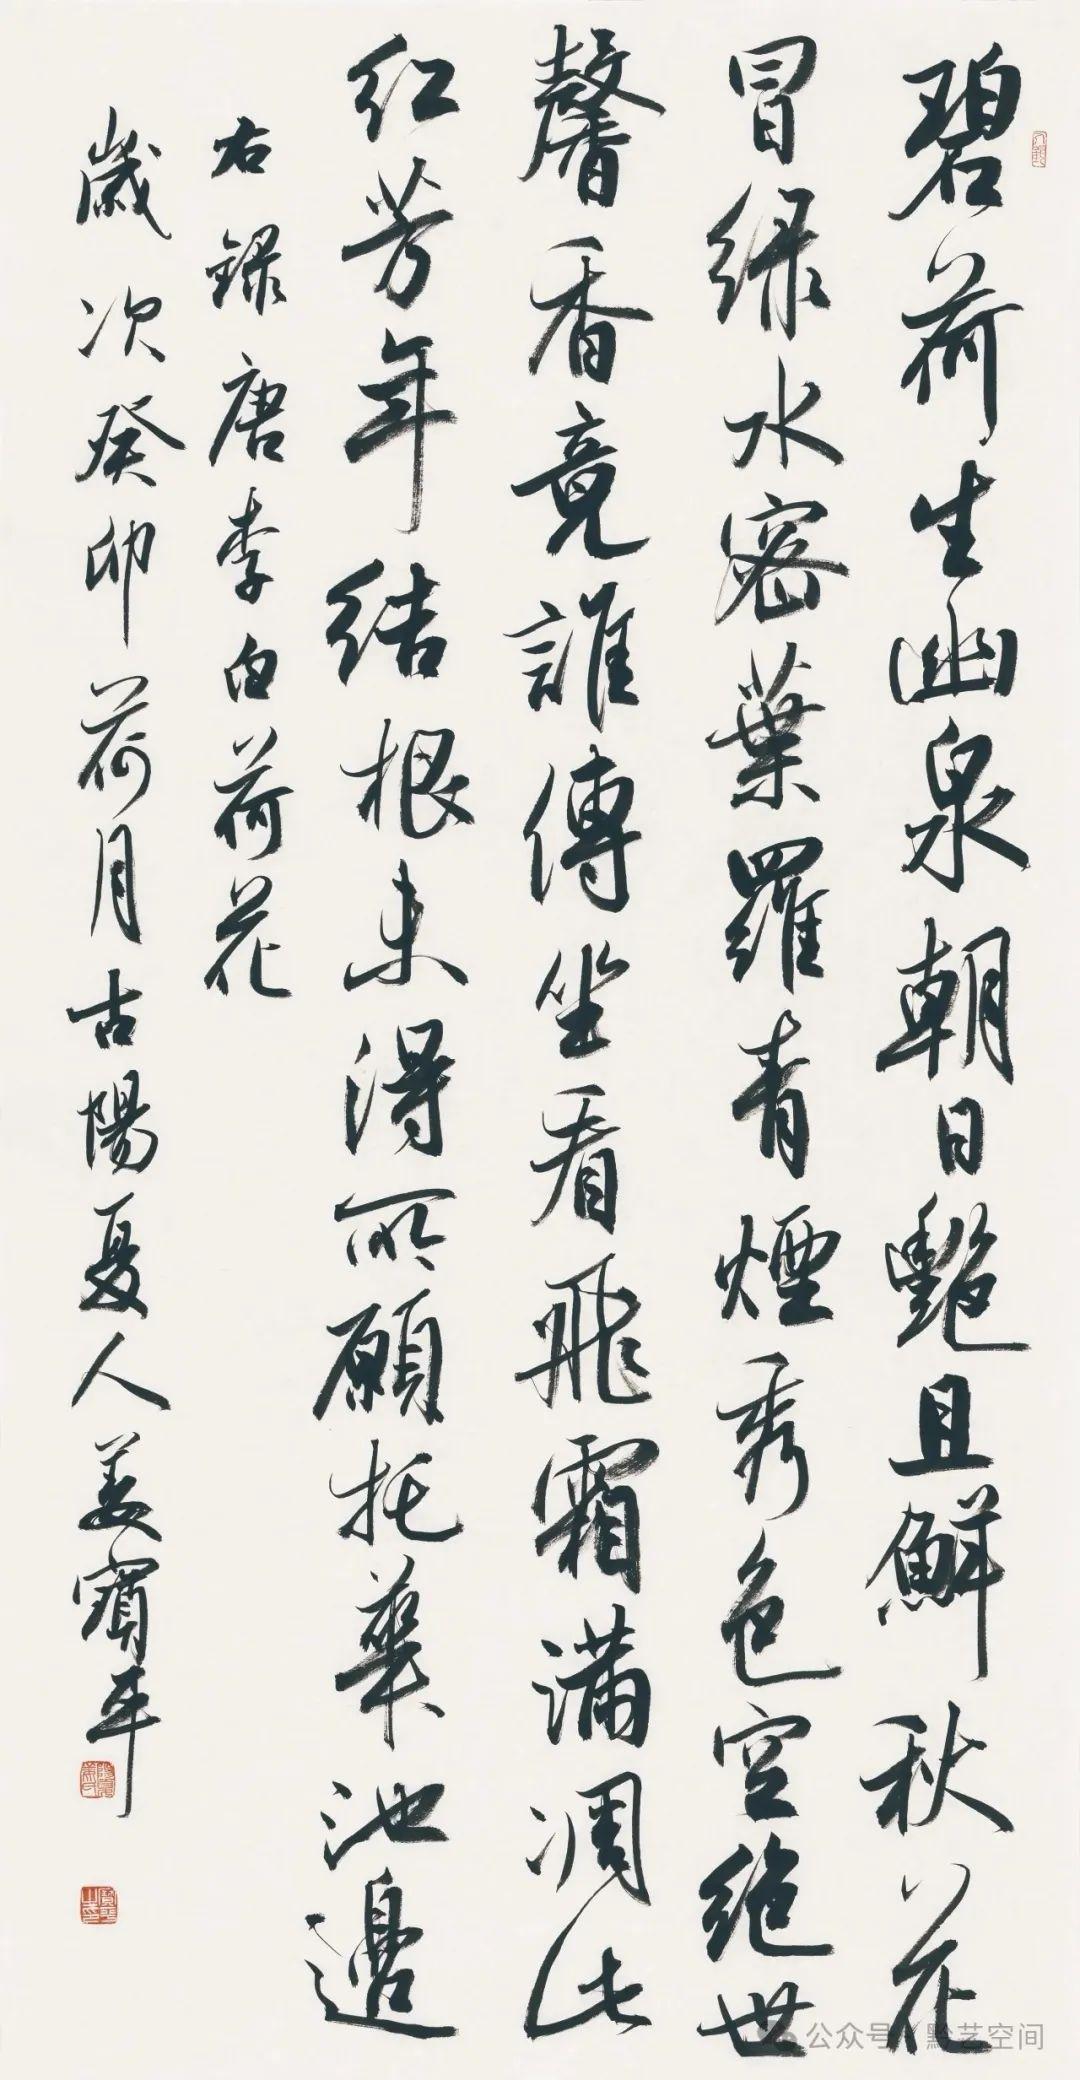 碧荷生幽泉朝日艷且鮮秋花
冒绿水密葉羅青煙秀色空絶世
馨香竟誰傳坐看飛霜满凋此
红芳年结根未得所願托華池邊
右録唐李白荷花
歲次癸卯荷月古陽夏人姜寶平
公众号 黔艺空间